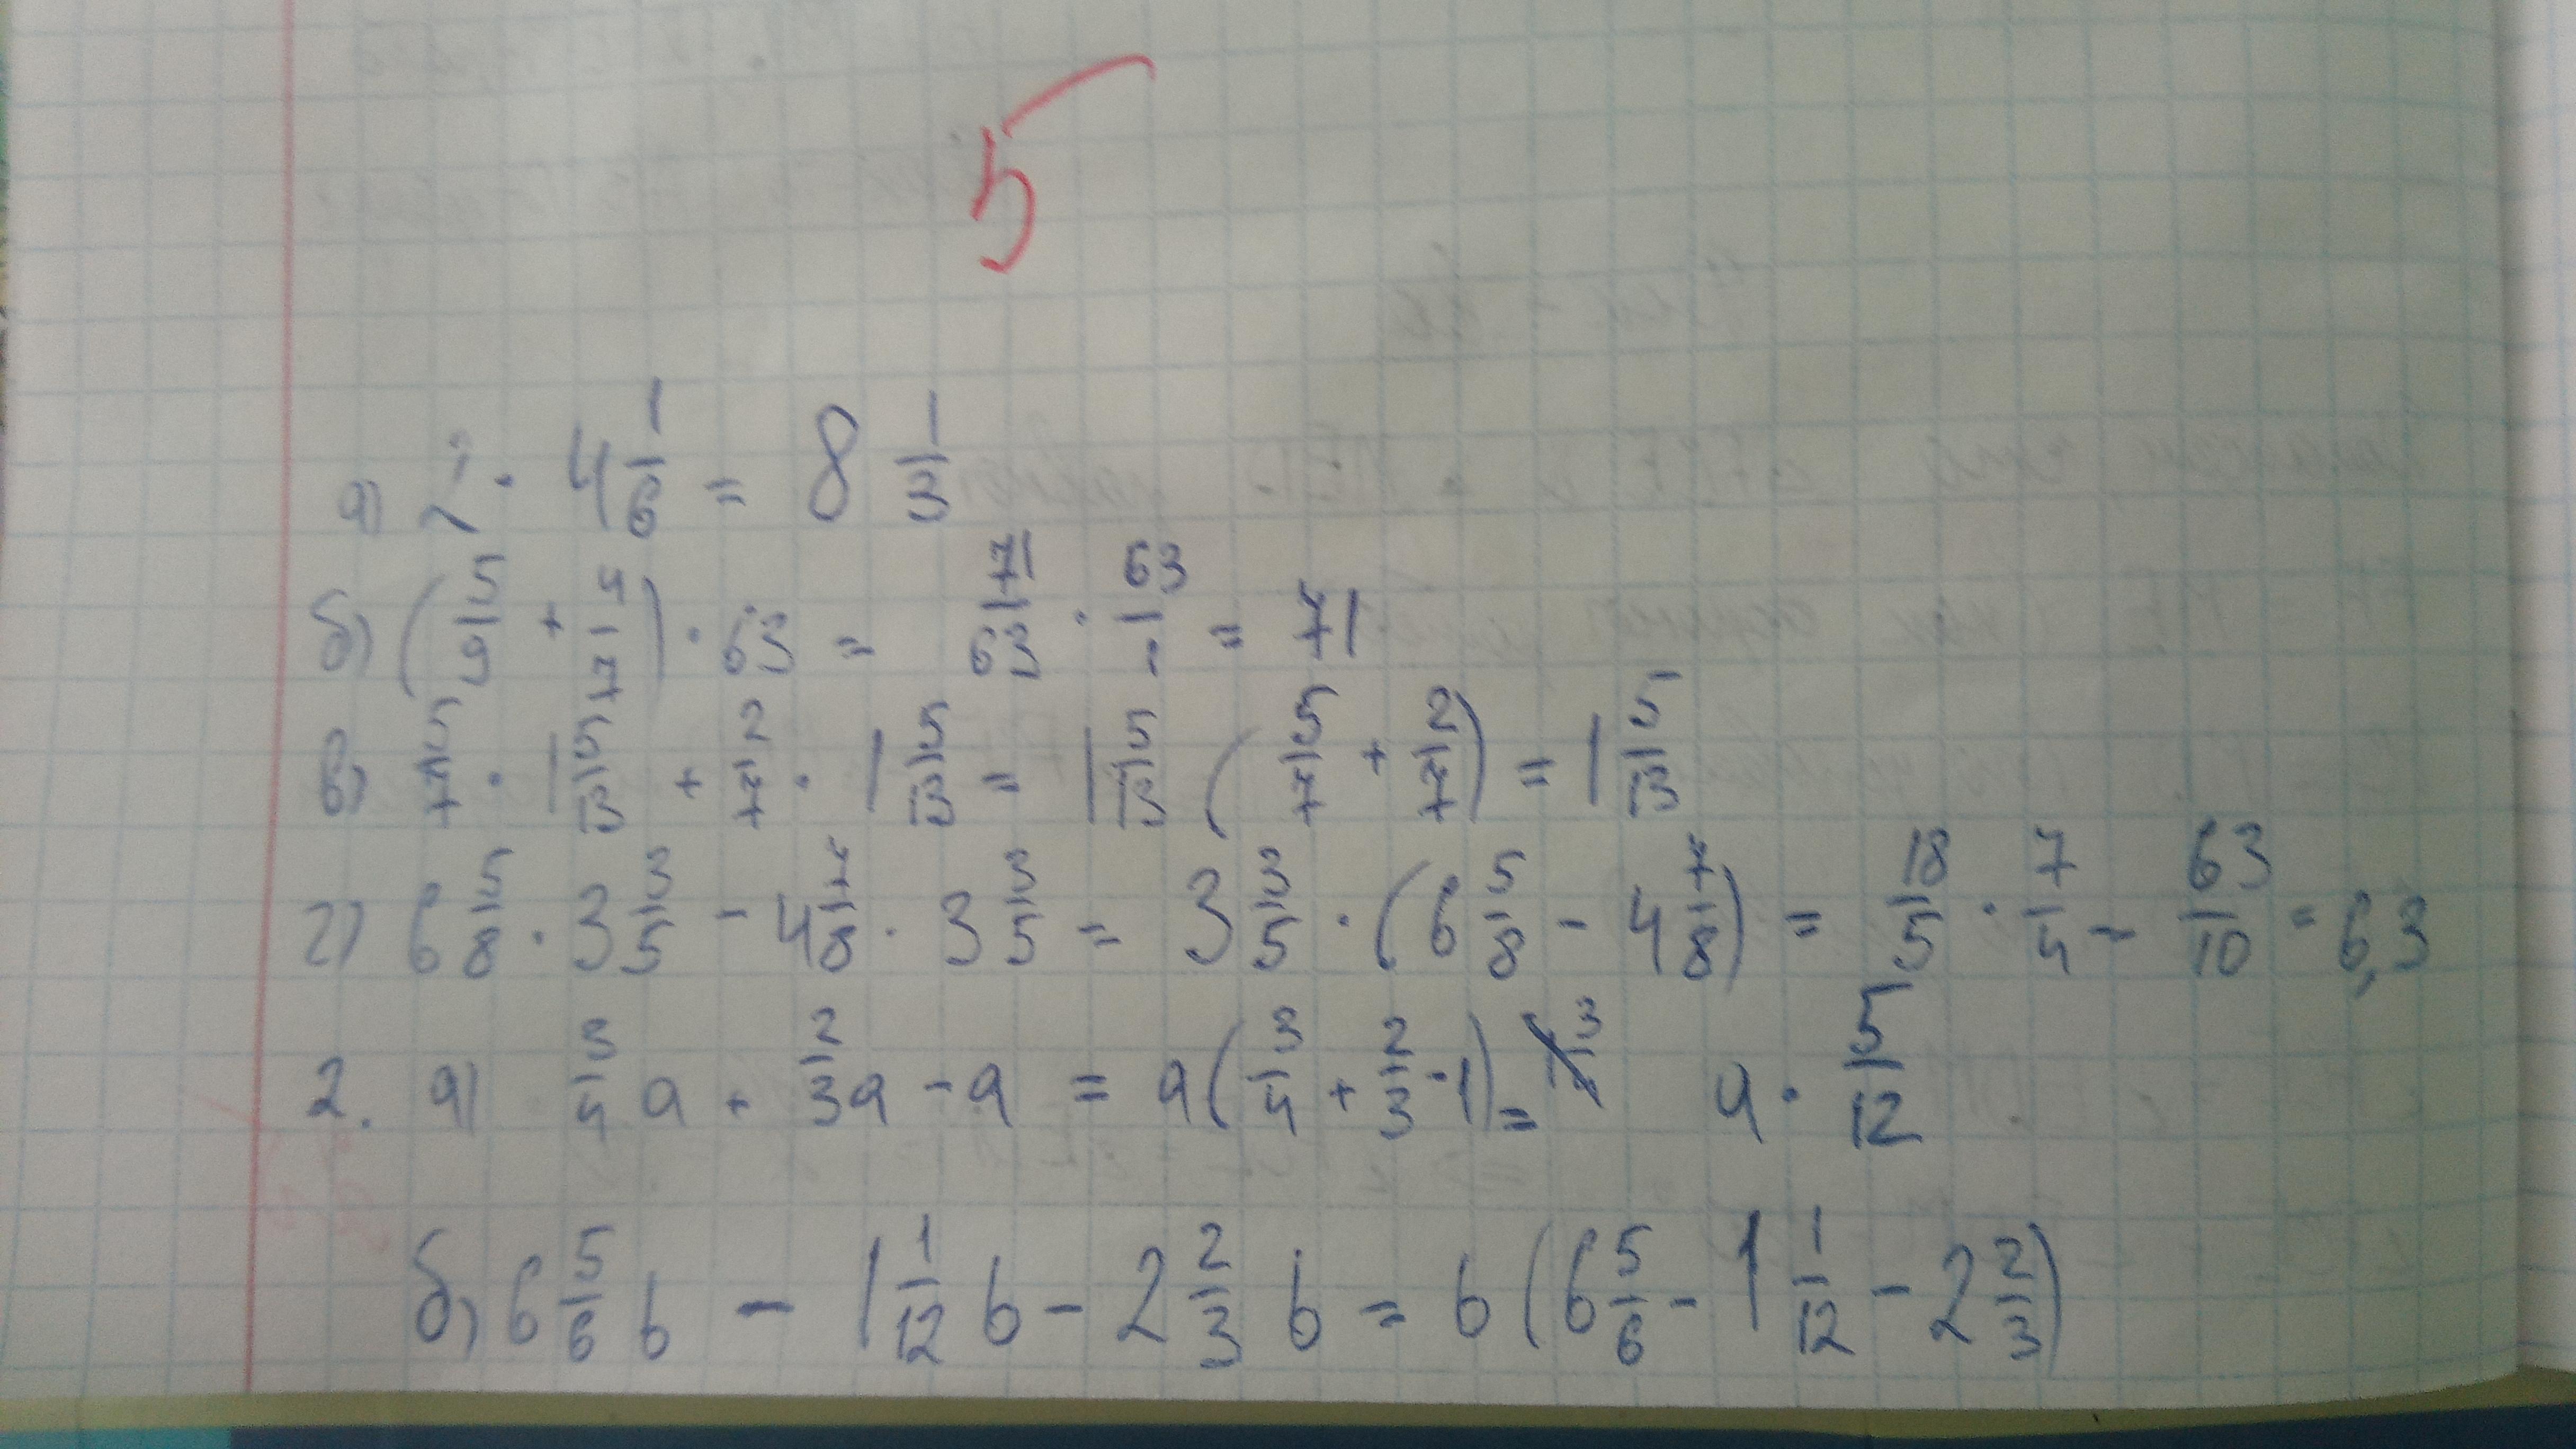 5
а) 2 · 4 1/6 = 8 1/3
б) (5/9 + 4/7) · 63 = 71/63 · 63/1 = 71
в) 5/7 · 1 5/13 + 2/7 · 1 5/13 = 1 5/13 (5/7 + 2/7) = 1 5/13
г) 6 5/8 · 3 3/5 - 4 7/8 · 3 3/5 = 3 3/5 · (6 5/8 - 4 7/8) = 18/5 · 7/4 = 63/10 = 6,3
2. а) 3/4 a + 2/3 a - a = a (3/4 + 2/3 - 1) = a · 5/12
б) 6 5/6 b - 1 1/12 b - 2 2/3 b = b (6 5/6 - 1 1/12 - 2 2/3)